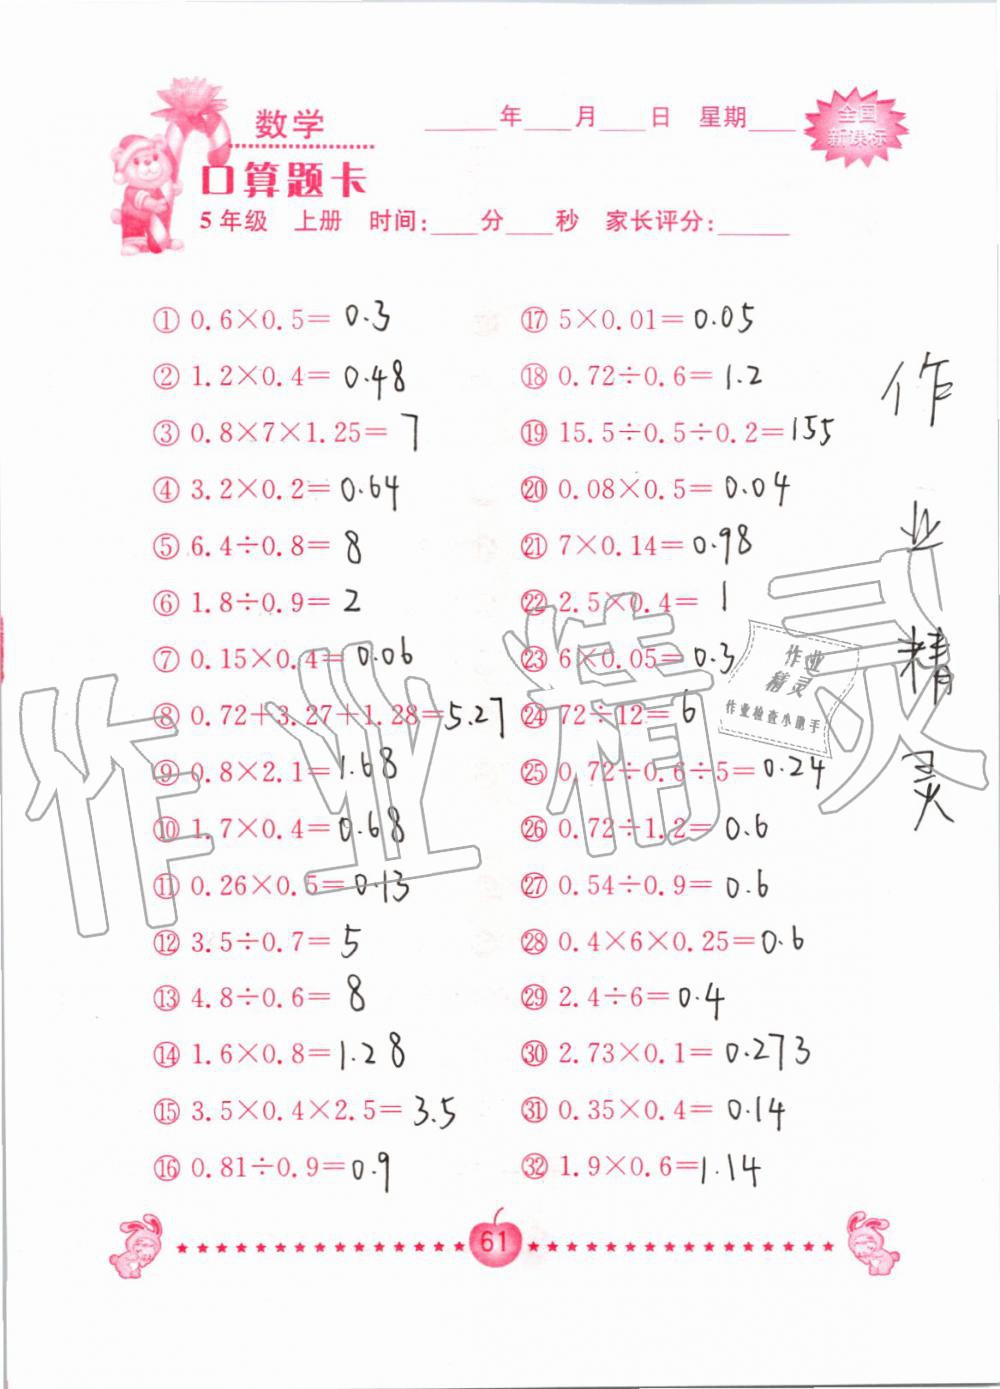 数学
____年____月____日 星期____
全国
新课标
口算题卡
5年级 上册 时间:____分____秒 家长评分:______
① 0.6×0.5= 0.3
② 1.2×0.4= 0.48
③ 0.8×7×1.25= 7
④ 3.2×0.2= 0.64
⑤ 6.4÷0.8= 8
⑥ 1.8÷0.9= 2
⑦ 0.15×0.4= 0.06
⑧ 0.72+3.27+1.28= 5.27
⑨ 0.8×2.1= 1.68
⑩ 1.7×0.4= 0.68
⑪ 0.26×0.5= 0.13
⑫ 3.5÷0.7= 5
⑬ 4.8÷0.6= 8
⑭ 1.6×0.8= 1.28
⑮ 3.5×0.4×2.5= 3.5
⑯ 0.81÷0.9= 0.9
⑰ 5×0.01= 0.05
⑱ 0.72÷0.6= 1.2
⑲ 15.5÷0.5÷0.2= 155
⑳ 0.08×0.5= 0.04
㉑ 7×0.14= 0.98
㉒ 2.5×0.4= 1
㉓ 6×0.05= 0.3
㉔ 72÷12= 6
㉕ 0.72÷0.6÷5= 0.24
㉖ 0.72÷1.2= 0.6
㉗ 0.54÷0.9= 0.6
㉘ 0.4×6×0.25= 0.6
㉙ 2.4÷6= 0.4
㉚ 2.73×0.1= 0.273
㉛ 0.35×0.4= 0.14
㉜ 1.9×0.6= 1.14
作
业
精
灵
作业精灵
作业
精灵
作业检查小助手
61